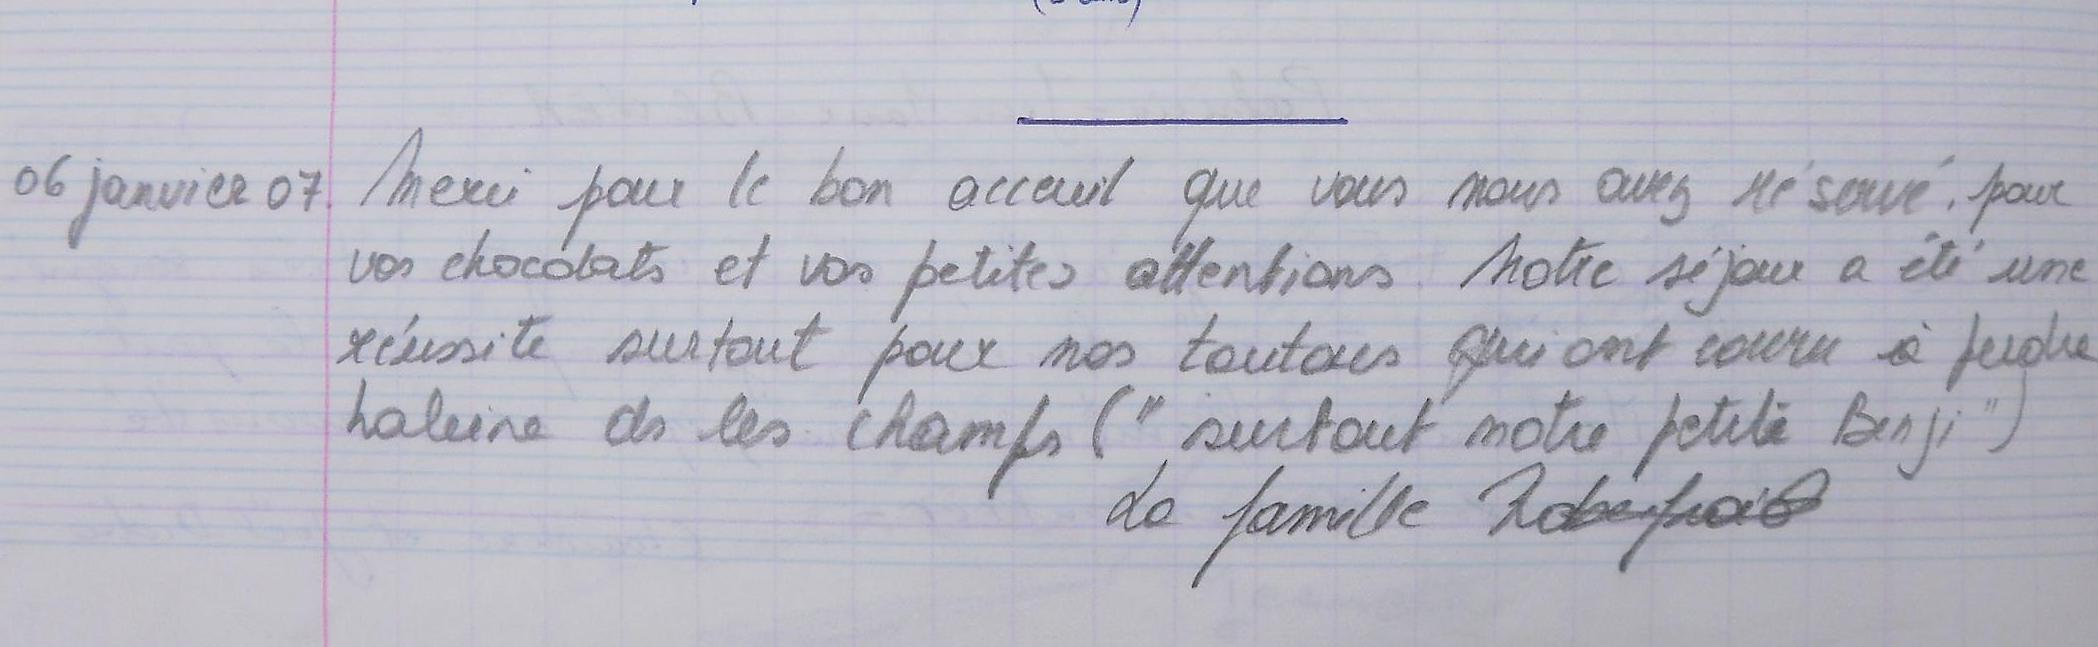 06 janvier 07. Merci pour le bon acceuil que vous nous avez réservé, pour
vos chocolats et vos petites attentions. Notre séjour a été une
réussite surtout pour nos toutous qui ont couru à perdre
haleine ds les champs ("surtout notre petite Benji")
La famille